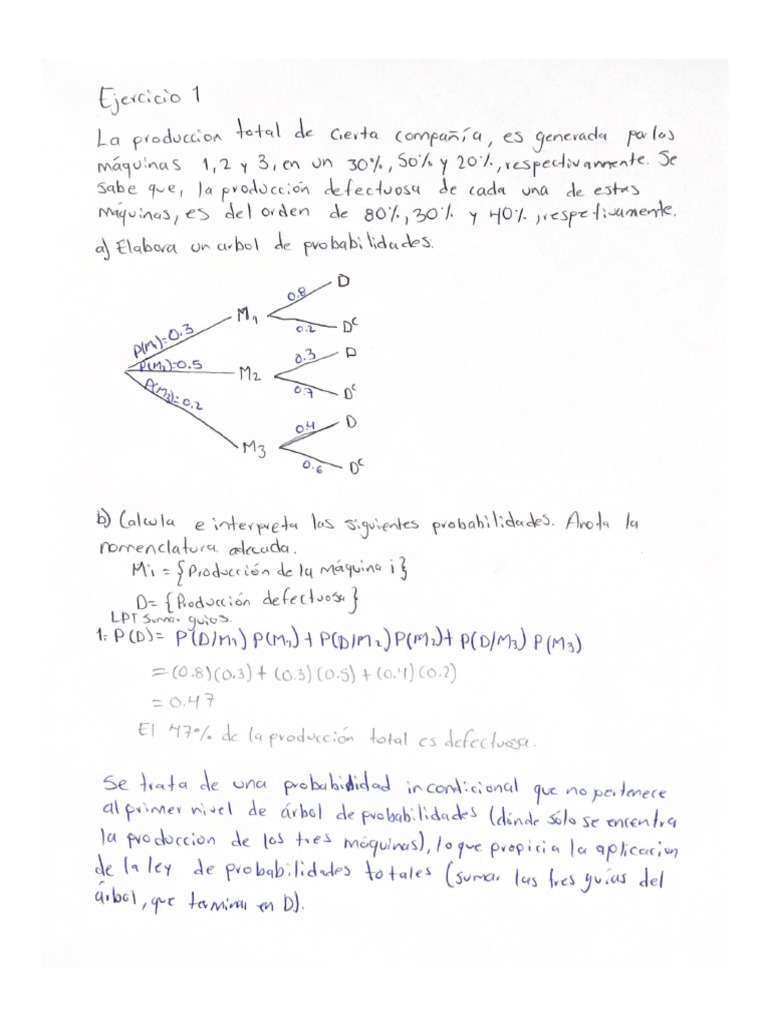 Ejercicio 1
La produccion total de cierta compañía, es generada por las
máquinas 1, 2 y 3, en un 30%, 50% y 20%, respectivamente. Se
sabe que, la producción defectuosa de cada una de estas
máquinas, es del orden de 80%, 30% y 40%, respetivamente.
a) Elabora un arbol de probabilidades.
0.8 D
P(M1)=0.3 M1
0.2 Dᶜ
0.3 D
P(M2)=0.5 M2
0.7 Dᶜ
P(M3)=0.2
0.4 D
M3
0.6 Dᶜ
b) Calcula e interpreta las siguientes probabilidades. Anota la
nomenclatura adecuada.
Mi = {Producción de la máquina i}
D= {Producción defectuosa}
LPT Sumar guias.
1. P(D)= P(D/M1) P(M1)+ P(D/M2)P(M2)+ P(D/M3) P(M3)
=(0.8)(0.3)+(0.3)(0.5)+(0.4)(0.2)
=0.47
El 47% de la producción total es defectuosa.
Se trata de una probabididad incondicional que no pertenece
al primer nivel de árbol de probabilidades (dónde sólo se encentra
la produccion de las tres máquinas), lo que propicia la aplicacion
de la ley de probabilidades totales (sumar las tres guías del
árbol, que terminar en D).